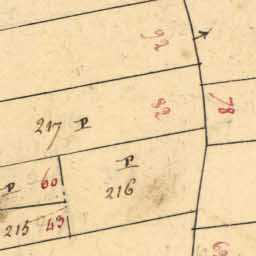 92
82
78
217 P
P
216
P 60
215 49